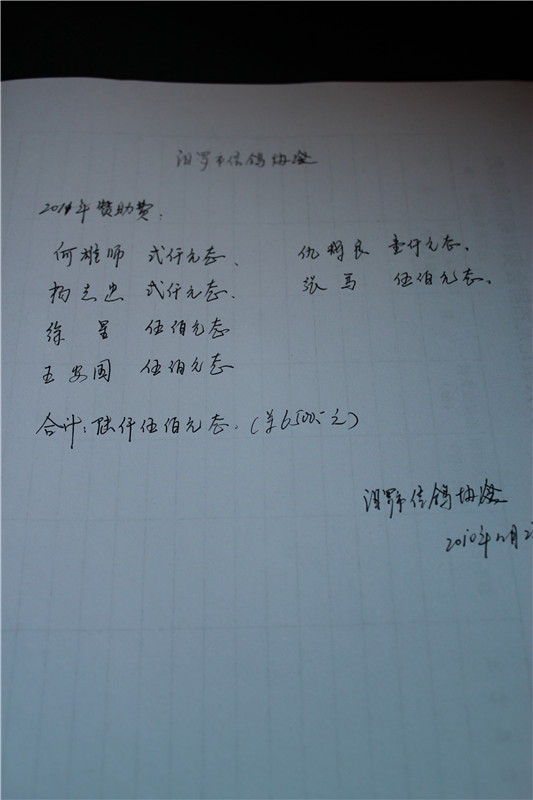 汨罗市信鸽协会
2011年赞助费:
何雄师 弍仟元整、 仇 良 壹仟元整、
杨志忠 弍仟元整. 张 马 伍佰元整、
徐 星 伍佰元整
王安国 伍佰元整
合计:陆仟伍佰元整.(羊6500.-元)
汨罗市信鸽协会
2010年12月2